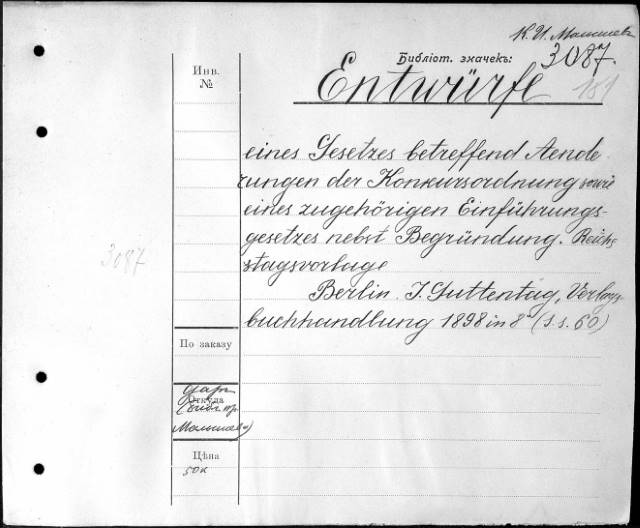 К. И. Малышев
Библіот. значекъ:
3087.
181
Инв.
№
Entwürfe
eines Gesetzes betreffend Aende
rungen der Konkursordnung sowie
eines zugehörigen Einführungs-
gesetzes nebst Begründung. Reichs
tagsvorlage
Berlin. J. Guttentag, Verlags
buchhandlung 1898 in 8° (S. s. 60)
3087
По заказу
Откуда
Малышева)
Цѣна
50к